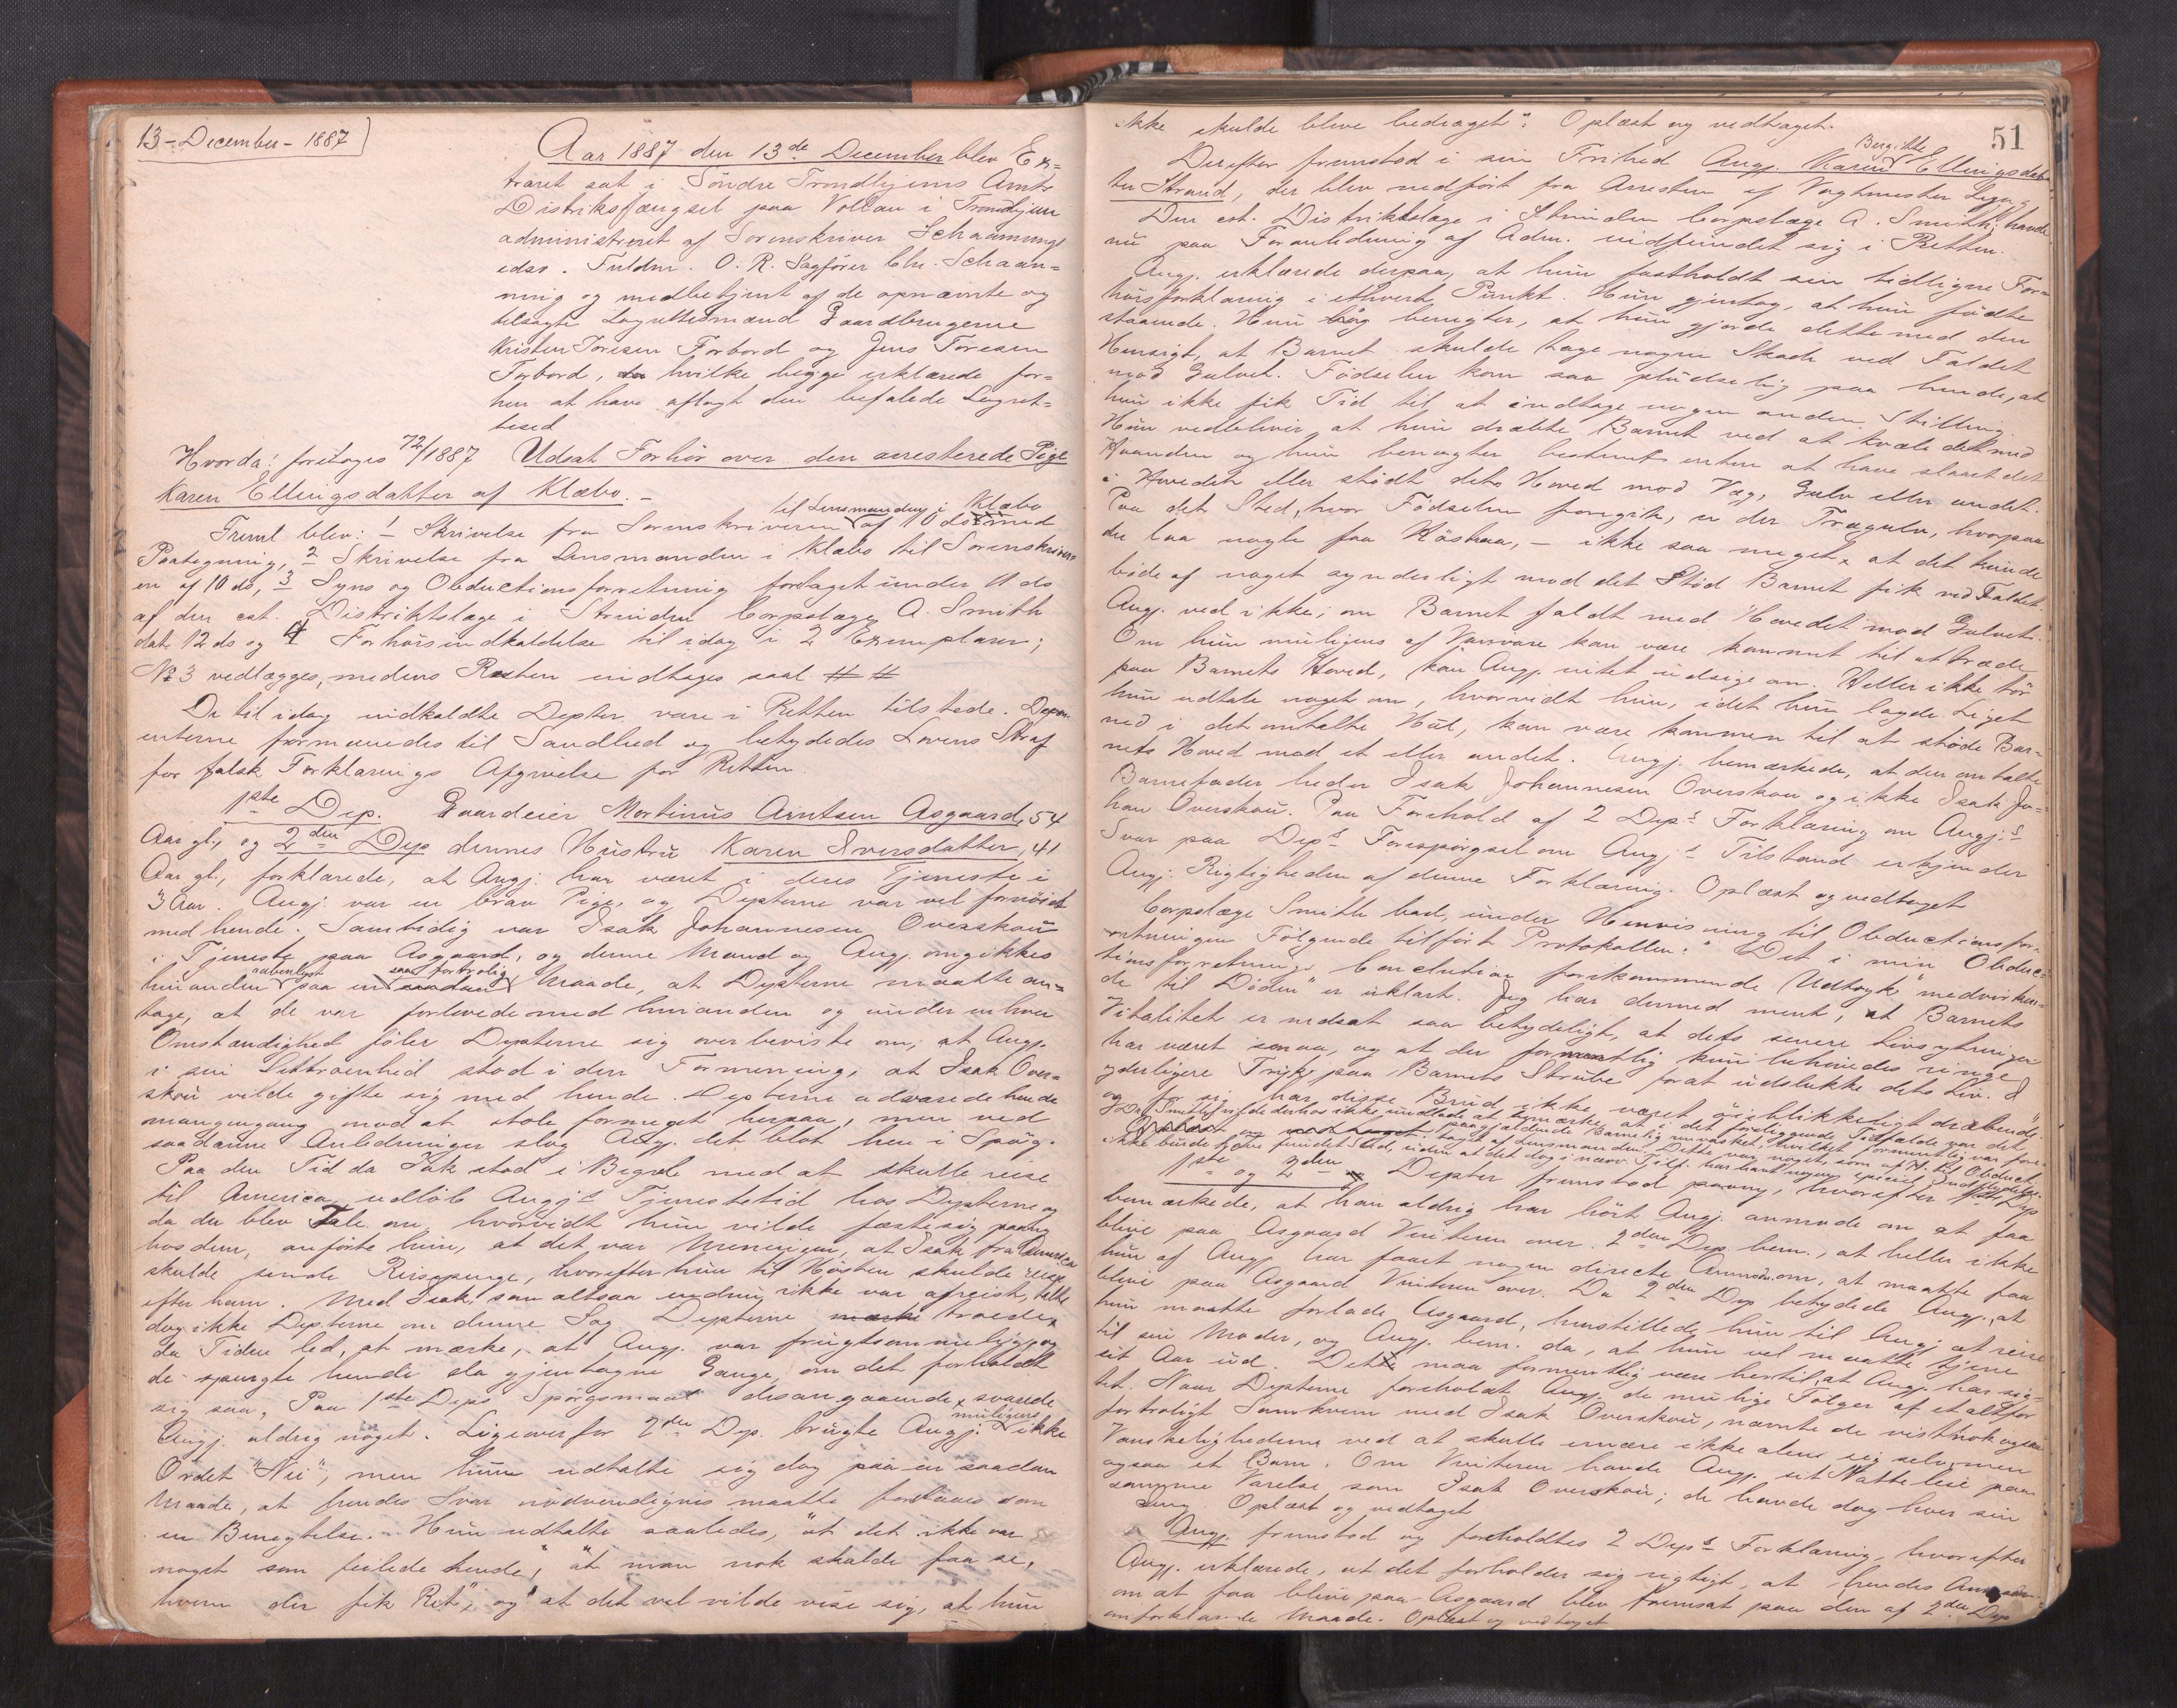 13-December-1887
Aar 1887 den 13de December blev Ex-
traret sat i Söndre Trondhjems Amts
Distriktsfængsel paa Vollan i Trondhjem
administreret af Sorenskriver Schaannings
edsv. Fuldm. O. R. Sagfører Chr. Schaan=
ning og medbetjent af de opnævnte og
tilsagte Lagrettesmænd Gaardbrugerne
Kristen Toresen Forbord og Jens Toresen
Forbord, hvilke begge erklærede for=
hen at have aflagt den befalede Lagret=
tesed
Hvorda: foretoges 72/1887 Udsat Forhör over den arresterede Pige
Karen Ellingsdatter af Klæbo.-
Freml blev: 1 Skrivelse fra Sorenskriveren til Lensmanden i Klæbo af 10 ds med
Paategning, 2 Skrivelse fra Lensmanden i Klæbo til Sorenskriver=
en af 10 ds, 3 Syns og Obductionsforretning foretaget under 11 ds
af den cst. Distriktslæge i Strinden Corpslæge A. Smith
dat. 12 ds og 4 Forhörsindkaldelse til idag i 2 Exemplarer;
No 3 vedlægges, medens Resten indtages saal. # #
De til idag indkaldte Depter. vare i Retten tilstede. Depon-
enterne formanedes til Sandhed og betydedes Lovens Straf
for falsk Forklarings Afgivelse for Retten.
1ste Dep. Gaardeier Martinus Arntsen Asgaard, 54
Aar gl., og 2den Dep dennes Hustru Karen Iversdatter, 41
Aar gl., forklarede, at Angj. har været i deres Tjeneste i
3 Aar. Angj. var en brav Pige, og Depterne var vel fornöiet
med hende. Samtidig var Isak Johannesen Overskau
i Tjeneste paa Asgaard, og denne Mand og Angj. omgikkes
hinanden aabenlyst paa en saa fortrolig Maade, at Depterne maatte an=
tage, at de var forlovede med hinanden og under enhver
Omstændighed föler Depterne sig overbeviste om, at Angj.
i sin Lettroenhed stod i den Formening, at Isak Over=
skau vilde gifte sig med hende. Depterne advarede hende
mangengang mod at stole formeget herpaa, men ved
saadanne Anledninger slog Angj. det blot hen i Spög.
Paa den Tid da Isak stod i Begreb med at skulle reise
til America, udlöb Angj.s Tjenestetid hos Depterne og
da der blev Tale om, hvorvidt hun vilde fæste sig paany
hos dem, anförte hun, at det var Meningen, at Isak fra America
skulde sende Reisepenge, hvorefter hun til Hösten skulde reise
efter ham. Med Isak, som altsaa endnu ikke var afreist, talte
dog ikke Depterne om denne Sag. Depterne troede,
da Tiden led, at mærke, at Angj. var frugtsommelig, og
de spurgte hende da gjentagne Gange, om det forholdt
sig saa. Paa 1ste Deps Spörgsmaal desangaaende svarede
Angj. aldrig noget. Ligeoverfor 2den Dep. brugte Angj. muligens ikke
Ordet "Nei", men hun udtalte sig dog paa en saadan
Maade, at hendes Svar nödvendigvis maatte forstaaes som
en Benegtelse. Hun udtalte saaledes, "at det ikke var
noget som feilede hende", "at man nok skulde faa se,
hvem der fik Ret", og "at det vel vilde vise sig, at hun
51
ikke skulde blive bedraget". Oplæst og vedtaget.
Derefter fremstod i sin Frihed Angj. Karen Bergitte Ellingsdat=
ter Strand, der blev nedfört fra Arresten af Vagtmester Lyng
Den cst. Distriktslæge i Strinden Corpslæge A. Smith, havde
nu paa Foranledning af Adm. indfundet sig i Retten.
Angj. erklærede derpaa, at hun fastholdt sin tidligere For=
hörsforklaring i ethvert Punkt. Hun gjentog, at hun födte
staaende. Hun benegter, at hun gjorde dette med den
Hensigt, at Barnet skulde tage nogen Skade ved Faldet
mod Gulvet. Födselen kom saa pludselig paa hende, at
hun ikke fik Tid til at indtage nogen anden Stilling.
Hun vedbliver, at hun dræbte Barnet ved at kvæle det med
Haanden og hun benegter bestemt enten at have slaaet det
i Hovedet eller stödt dets Hoved mod Væg, Gulv eller andet.
Paa det Sted, hvor Födselen foregik, er der Trægulv, hvorpaa
der laa nogle faa Höstraa, - ikke saa meget, at det kunde
böde af noget synderligt mod det Stöd Barnet fik ved Faldet.
Angj. ved ikke, om Barnet faldt med Hovedet mod Gulvet.
Om hun muligens af Vanvare kan være kommet til at træde
paa Barnets Hoved, kan Angj. intet udsige om. Heller ikke tör
hun udtale noget om, hvorvidt hun, idet hun lagde Liget
ned i det omtalte Hul, kan være kommen til at stöde Bar=
nets Hoved mod et eller andet. Angj. bemærkede, at den omtalte
Barnefader heder Isak Johannesen Overskau og ikke Isak Jo=
han Overskau. Paa Forehold af 2 Deps Forklaring om Angj.s
Svar paa Deps Forespörgsel om Angj.s Tilstand erkjender
Angj. Rigtigheden af denne Forklaring. Oplæst og vedtaget
Corpslæge Smith bad, under Henvisning til Obductionsfor=
retningen Fölgende tilfört Protokollen: "Det i min Obduc=
tionsforretnings Conclution forekommende Udtryk "medvirken=
de til Döden" er uklart. Jeg har dermed ment, at Barnets
Vitalitet er nedsat saa betydeligt, at dets senere Livsytringer
har været smaa, og at der formentlig kun behövedes ringe
yderligere Tryk paa Barnets Strube for at udslukke dets Liv. I
og for sig har disse Brud ikke været öieblikkeligt dræbende".
Dr. Smith fandt derhos ikke at undlade at bemærke, at i det foreliggende Tilfælde var det
paagjældende Barnelig renvasket, hvilket formentlig var fore=
taget af Lensmanden. Dette var noget, som af H. til Obduct.
ikke burde have fundet Sted, uden at det dog i nærv. Tilf. har havt nogen speciel Indflydelse.
1ste og 2den Depter fremstod paany, hvorefter 1ste Dep
bemærkede, at han aldrig har hört Angj. anmode om at faa
blive paa Asgaard Vinteren over. 2den Dep bem., at heller ikke
hun af Angj. har faaet nogen directe Anmodn. om, at maatte faa
blive paa Asgaard Vinteren over. Da 2den Dep betydede Angj., at
hun maatte forlade Asgaard, henstillede hun til Angj at reise
til sin Moder, og Angj. bem. da, at hun vel maatte tjene
sit Aar ud. Dette maa formentlig være hertil, at Angj. har sig=
tet. Naar Depterne foreholdt Angj. de mulige Fölger af et altfor
fortroligt Samkvem med Isak Overskau, nævnte de vistnok ogsaa
Vanskelighederne ved at skulle ernære ikke alene sig selv, men
ogsaa et Barn. Om Vinteren havde Angj. sit Natteleie paa
samme Værelse som Isak Overskau; de havde dog hver sin
Seng. Oplæst og vedtaget
Angj. fremstod og foreholdtes 2 Deps Forklaring, hvorefter
Angj. erklærede, at det forholder sig rigtigt, at hendes Anmodn.
om at faa blive paa Asgaard blev fremsat paa den af 2den Dep
omforklarede Maade. Oplæst og vedtaget